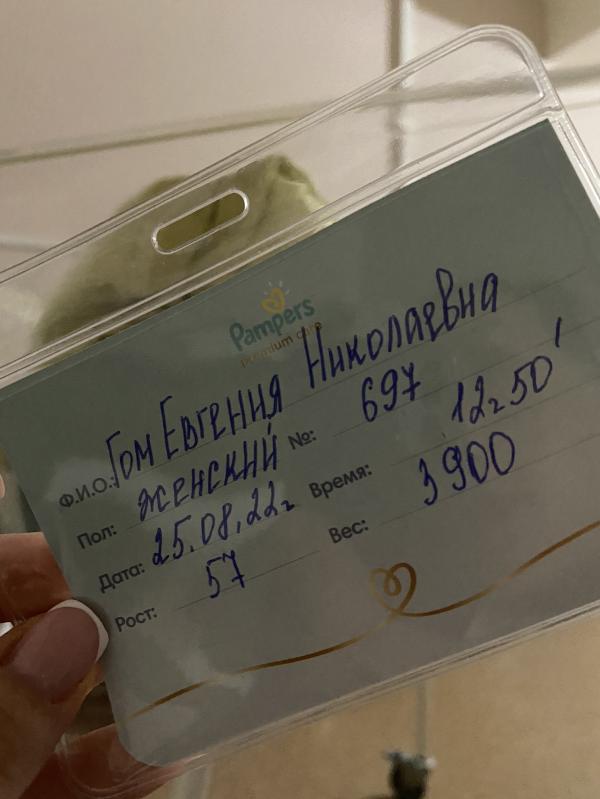 Pampers
premium care
Ф.И.О.: Гом Евгения Николаевна
Пол: женский №: 697
Дата: 25.08.22г Время: 12ч50'
Рост: 57 Вес: 3900